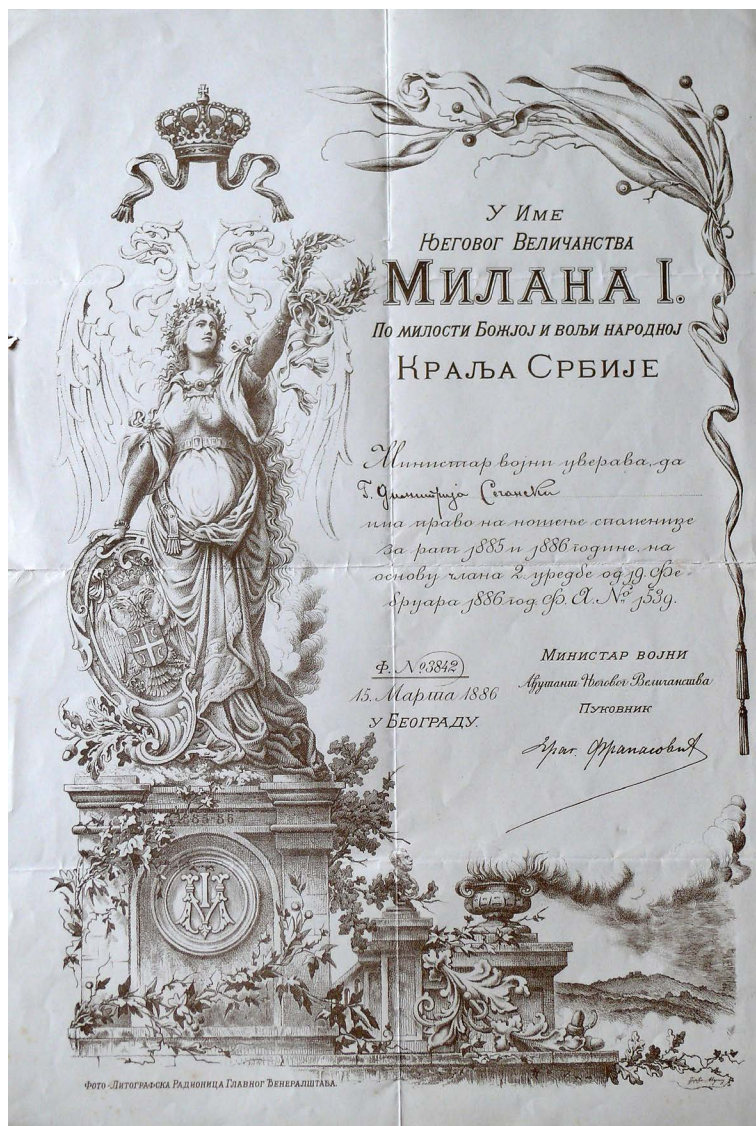 У Име
Његовог Величанства
Милана I.
По милости Божјој и вољи народној
Краља Србије
Министар војни уверава, да
Г. Димитрија
има право на ношење споменице
за рат 1885 и 1886 године, на
основу члана 2 уредбе од 19. Фе-
бруара 1886 год. Ф. А. № 1539.
Ф. № 3842
15. Марта 1886
у Београду.
Министар војни
Ађутант Његовог Величанства
Пуковник
1885-86
М I
Фото-Литографска Радионица Главног Ђенералштаба.